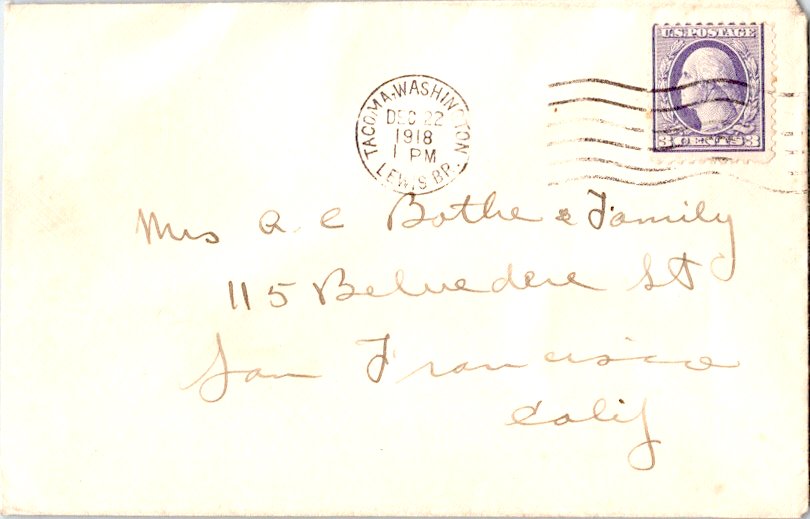 U.S. POSTAGE
3 CENTS 3
TACOMA, WASHINGTON
DEC 22
1918
1 PM
LEWIS BR.
Mrs A. C Bothe & Family
115 Belvedere St
San Francisco
Calif